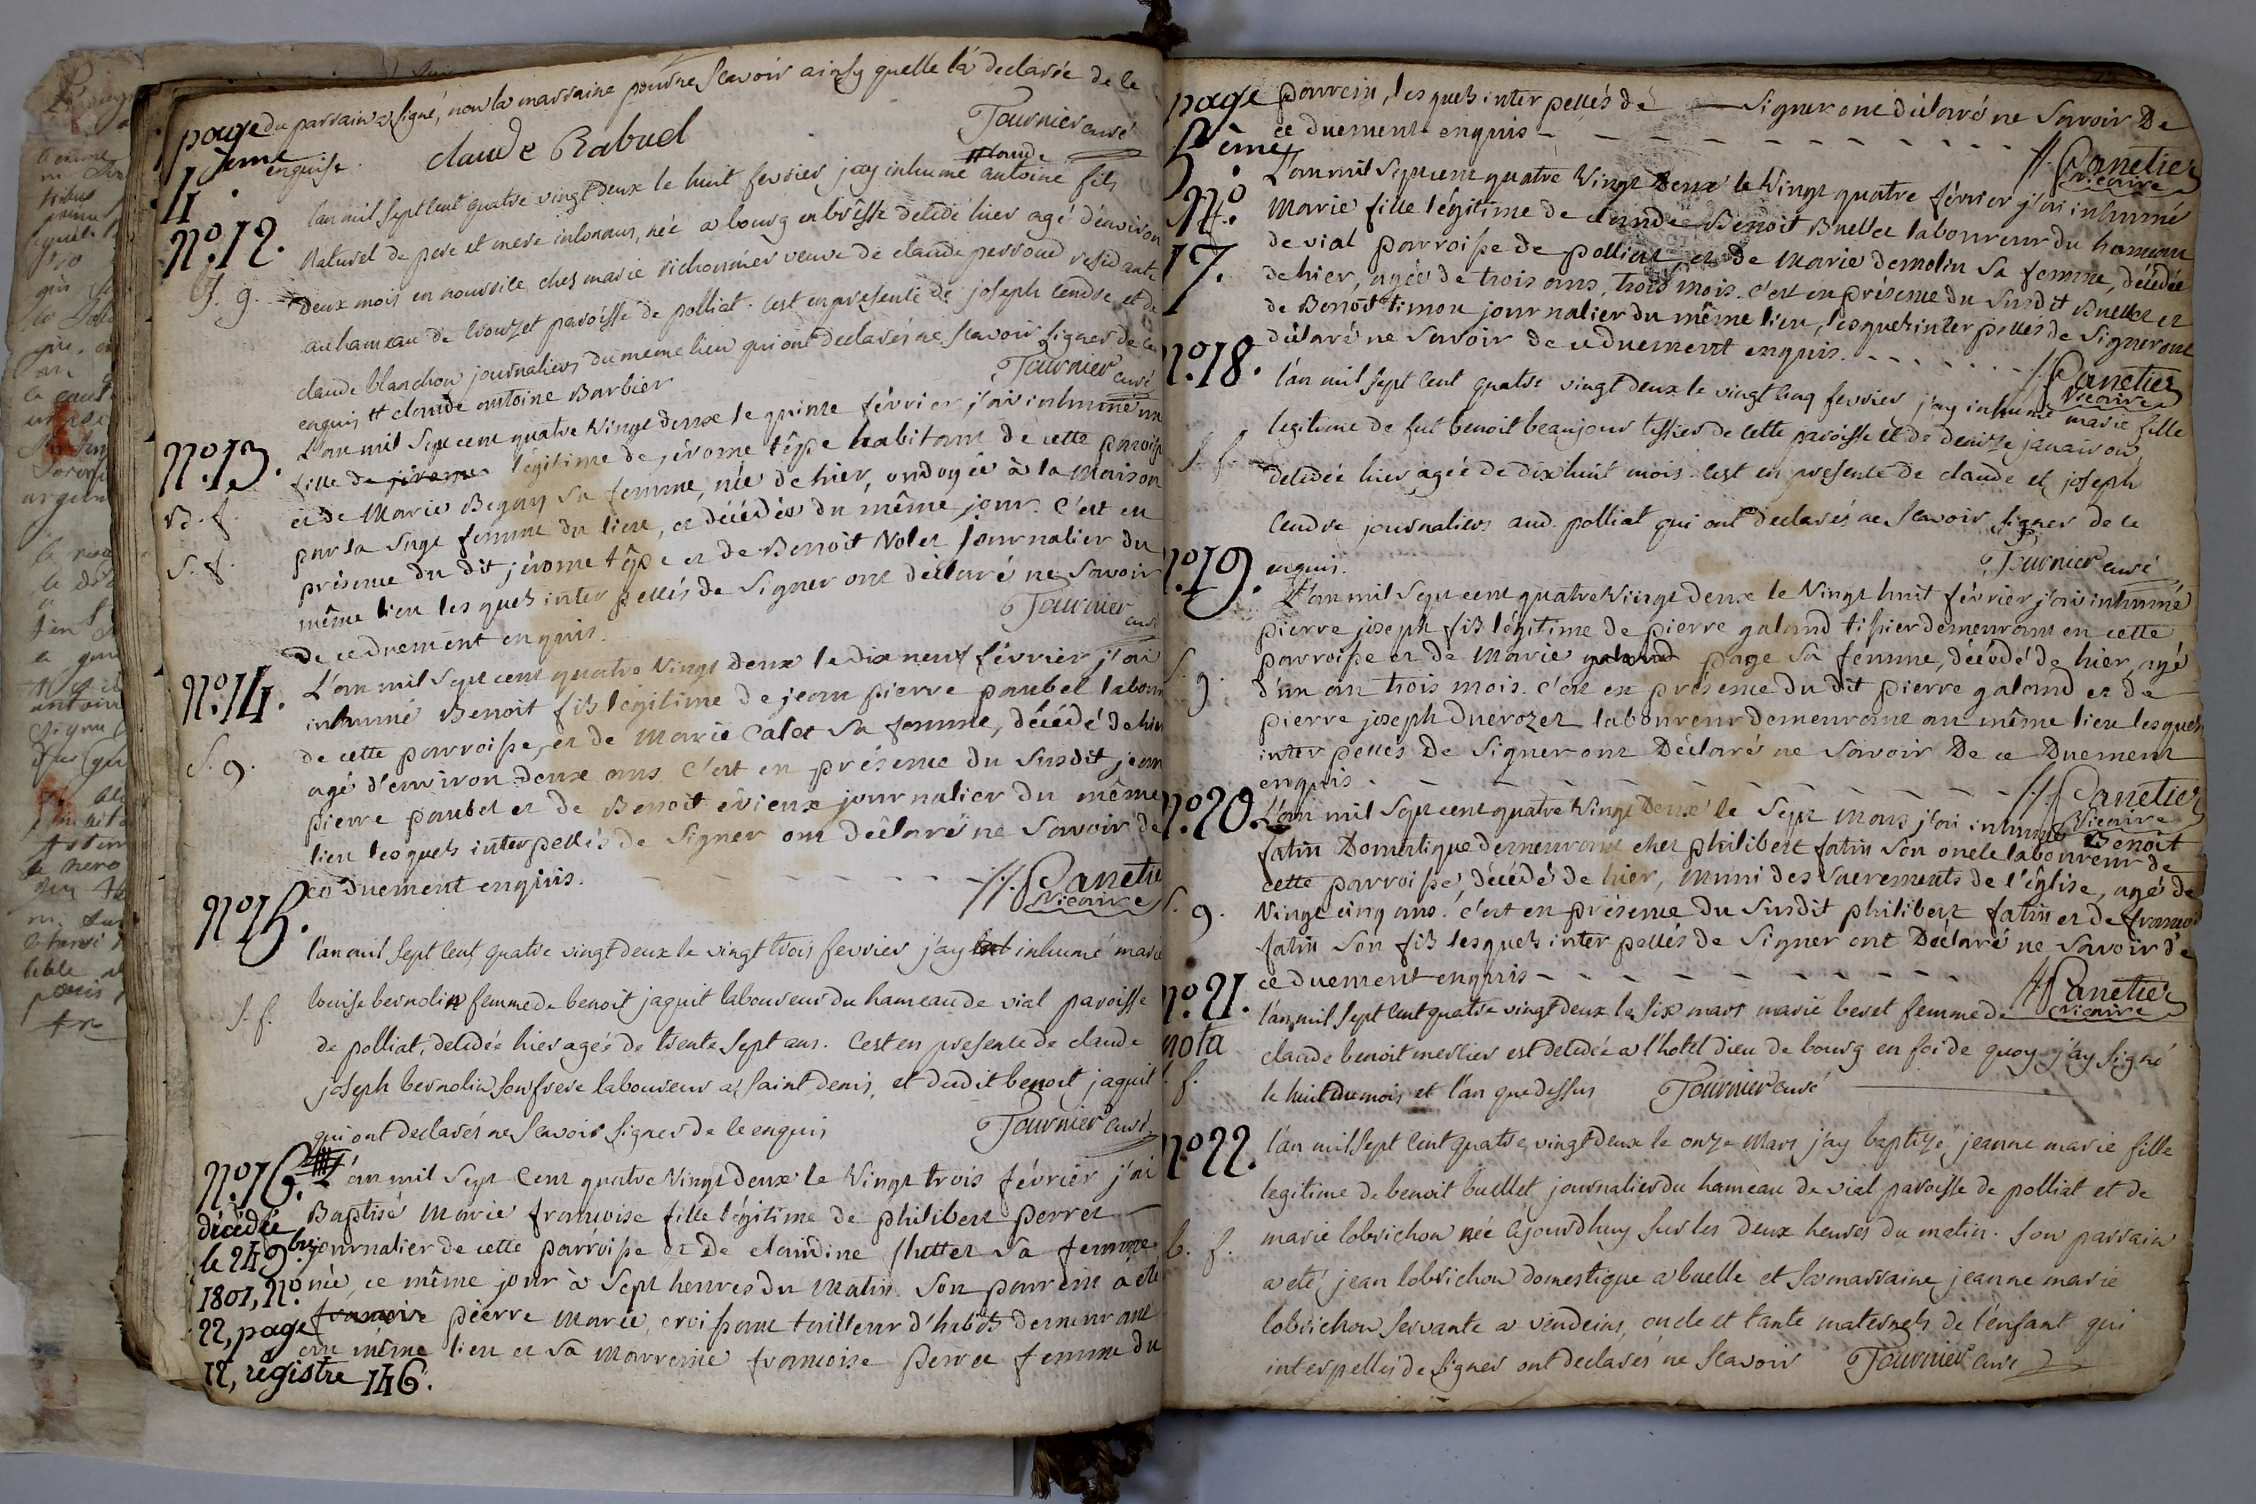 page du parrain a signé, non la marraine pour ne scavoir ainsy quelle la declarée de ce
4ème enquise. claude Rabuel Tournier curé
N.º 12. l'an mil sept cent quatre vingt deux le huit fevrier j'ay inhumé # claude antoine fils
naturel de pere et mere inconnus, née a bourg en bresse decedé hier agé d'environ
S. g. deux mois en nourrice ches marie richonnier veuve de claude perroud residante
au hameau de Crouzet paroisse de polliat. c'est en presence de joseph cendre et de
claude blanchon journaliers du meme lieu qui ont declarés ne scavoir signer de ce
enquis # claude antoine Barbier Tournier curé
N.º 13. L'an mil sept cent quatre vingt deux le quinze février j'ai inhumé une
fille de jirome légitime de jérome têpe habitant de cette paroisse
B. f. et de Marie Beguy sa femme, née de hier, ondoyée à la maison
par la sage femme du lieu, et décédée du même jour. C'est en
S. f. présence du dit jérome têpe et de Benoit Nolet journalier du
même lieu lesquels interpellés de signer ont déclaré ne savoir
de ce duement enquis. Tournier curé
N.º 14. L'an mil sept cent quatre vingt deux le dix neuf février j'ai
inhumé Benoit fils légitime de jean pierre paubel labour
de cette parroisse, et de Marie Calet sa femme, décédé de hier
S. g. agé d'environ deux ans. C'est en présence du susdit jean
pierre paubel et de Benoit évieux journalier du même
lieu lesquels interpellés de signer ont déclaré ne savoir de
ce duement enquis. Panetie
Vicaire
Nº 15. l'an mil sept cent quatre vingt deux le vingt trois fevrier j'ay inhumé marie
S. f. louise bernolin femme de benoit jaquit laboureur du hameau de vial paroisse
de polliat, decedée hier agée de trente sept ans. C'est en presence de claude
joseph bernolin son frere laboureur a saint denis, et dudit benoit jaquit
qui ont declarés ne scavoir signer de ce enquis Tournier curé
Nº 16. L'an mil sept cent quatre vingt deux le vingt trois février j'ai
décédée Baptisé Marie françoise fille légitime de philibert perret
le 24 9bre journalier de cette parroisse et de claudine sa femme
1801, Nº née, ce même jour à sept heures du matin. Son parrein a été
22, page pierre Marie croissant tailleur d'habits demeurant
12, régistre 146. au même lieu et sa marreine françoise perret femme du
page parrein, lesquels interpellés de signer ont déclaré ne savoir De
5ème ce duement enquis Panetier
Vicaire
N.º 17. L'an mil sept cent quatre vingt deux le vingt quatre février j'ai inhumé
Marie fille légitime de claude Benoit Buellet laboureur du hameau
de vial parroisse de polliat, et de Marie demolin sa femme, décédée
de hier, agée de trois ans, trois mois. C'est en présence du susdit Buellet et
de Benoit timon journalier du même lieu, lesquels interpellés de signer ont
déclaré ne savoir de ce duement enquis. Panetier
Vicaire
Nº 18. l'an mil sept cent quatre vingt deux le vingt cinq fevrier j'ay inhumé marie fille
S. f. legitime de fut benoit beaujour tissier de cette paroisse et de denize janairon
decedée hier agée de dix huit mois. c'est en presence de claude et joseph
Cendre journaliers aud. polliat qui ont declarés ne scavoir signer de ce
enquis. Tournier curé
Nº 19. L'an mil sept cent quatre vingt deux le vingt huit février j'ai inhumé
pierre joseph fils légitime de pierre galand tissier demeurant en cette
S. g. parroisse et de Marie page sa femme, décédé de hier, agé
d'un an trois mois. C'est en présence du dit pierre galand et de
pierre joseph Duerozet laboureur demeurant au même lieu lesquels
interpellés de signer ont Déclaré ne savoir De ce Duement
enquis. Panetier
Vicaire
Nº 20. L'an mil sept cent quatre vingt Deux le sept Mars j'ai inhumé Benoit
fatin Domestique demeurant chez philibert fatin son oncle laboureur de
cette parroisse, décédé de hier, Muni des sacrements de l'église, agé de
S. g. vingt cinq ans. C'est en présence du susdit philibert fatin et de francois
fatin son fils lesquels interpellés de signer ont Déclaré ne savoir de
ce duement enquis Panetier
Vicaire
Nº 21. l'an mil sept cent quatre vingt deux le six mars marie beret femme de
nota claude benoit merlier est decedée a l'hotel dieu de bourg en foi de quoy j'ay signé
S. f. le huit du mois et l'an que dessus Tournier curé
Nº 22. l'an mil sept cent quatre vingt deux le onze Mars j'ay baptizé jeanne marie fille
legitime de benoit buellet journalier du hameau de vial paroisse de polliat et de
b. f. marie lobrichon née cejourdhuy sur les deux heures du matin. son parrain
a eté jean lobrichon domestique a buelle et sa marraine jeanne marie
lobrichon servante a vendeins, oncle et tante maternels de l'enfant qui
interpellés de signer ont declarés ne scavoir Tournier curé